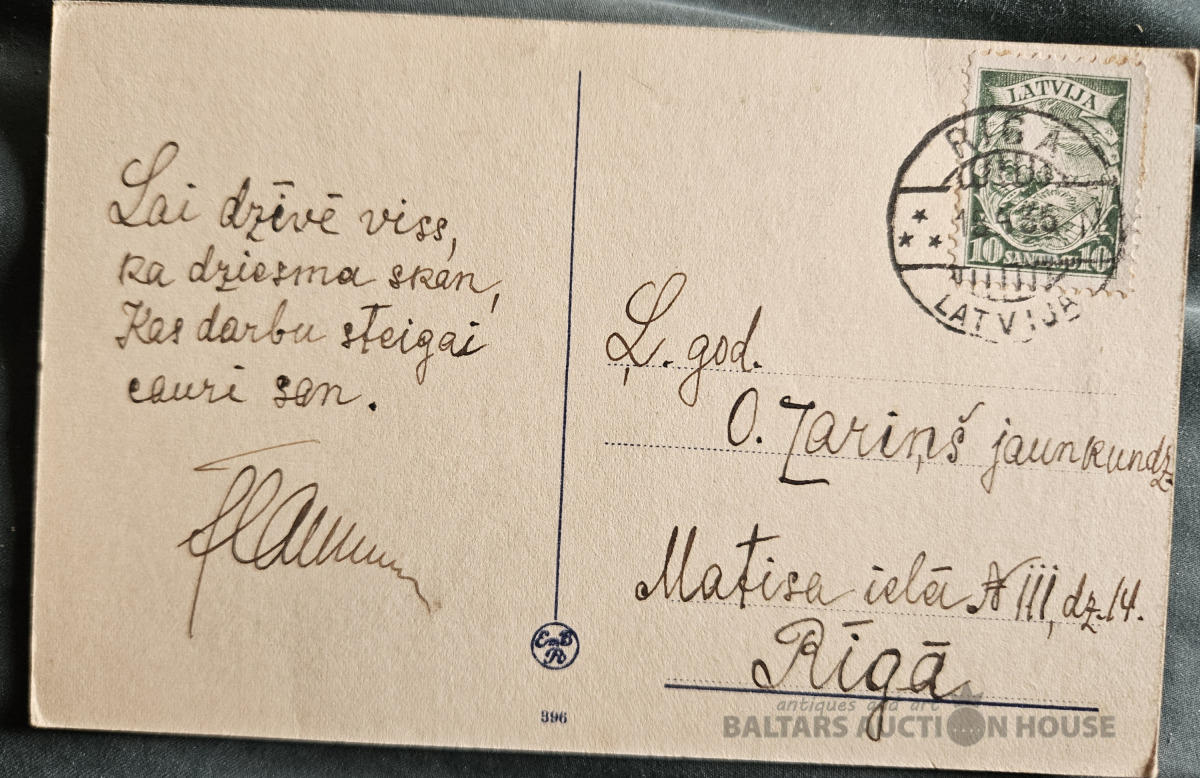 Lai dzīvē viss,
ka dziesma skan,
Kas darbu steigai
cauri san.
LATVIJA
RIGA
10 SANTIMI 10
LATVIJA
Ļ. god.
O. Zariņš jaunkundz
Matisa ielā № 111, dz. 14.
Rīgā
EBR
396
antiques and art
BALTARS AUCTION HOUSE